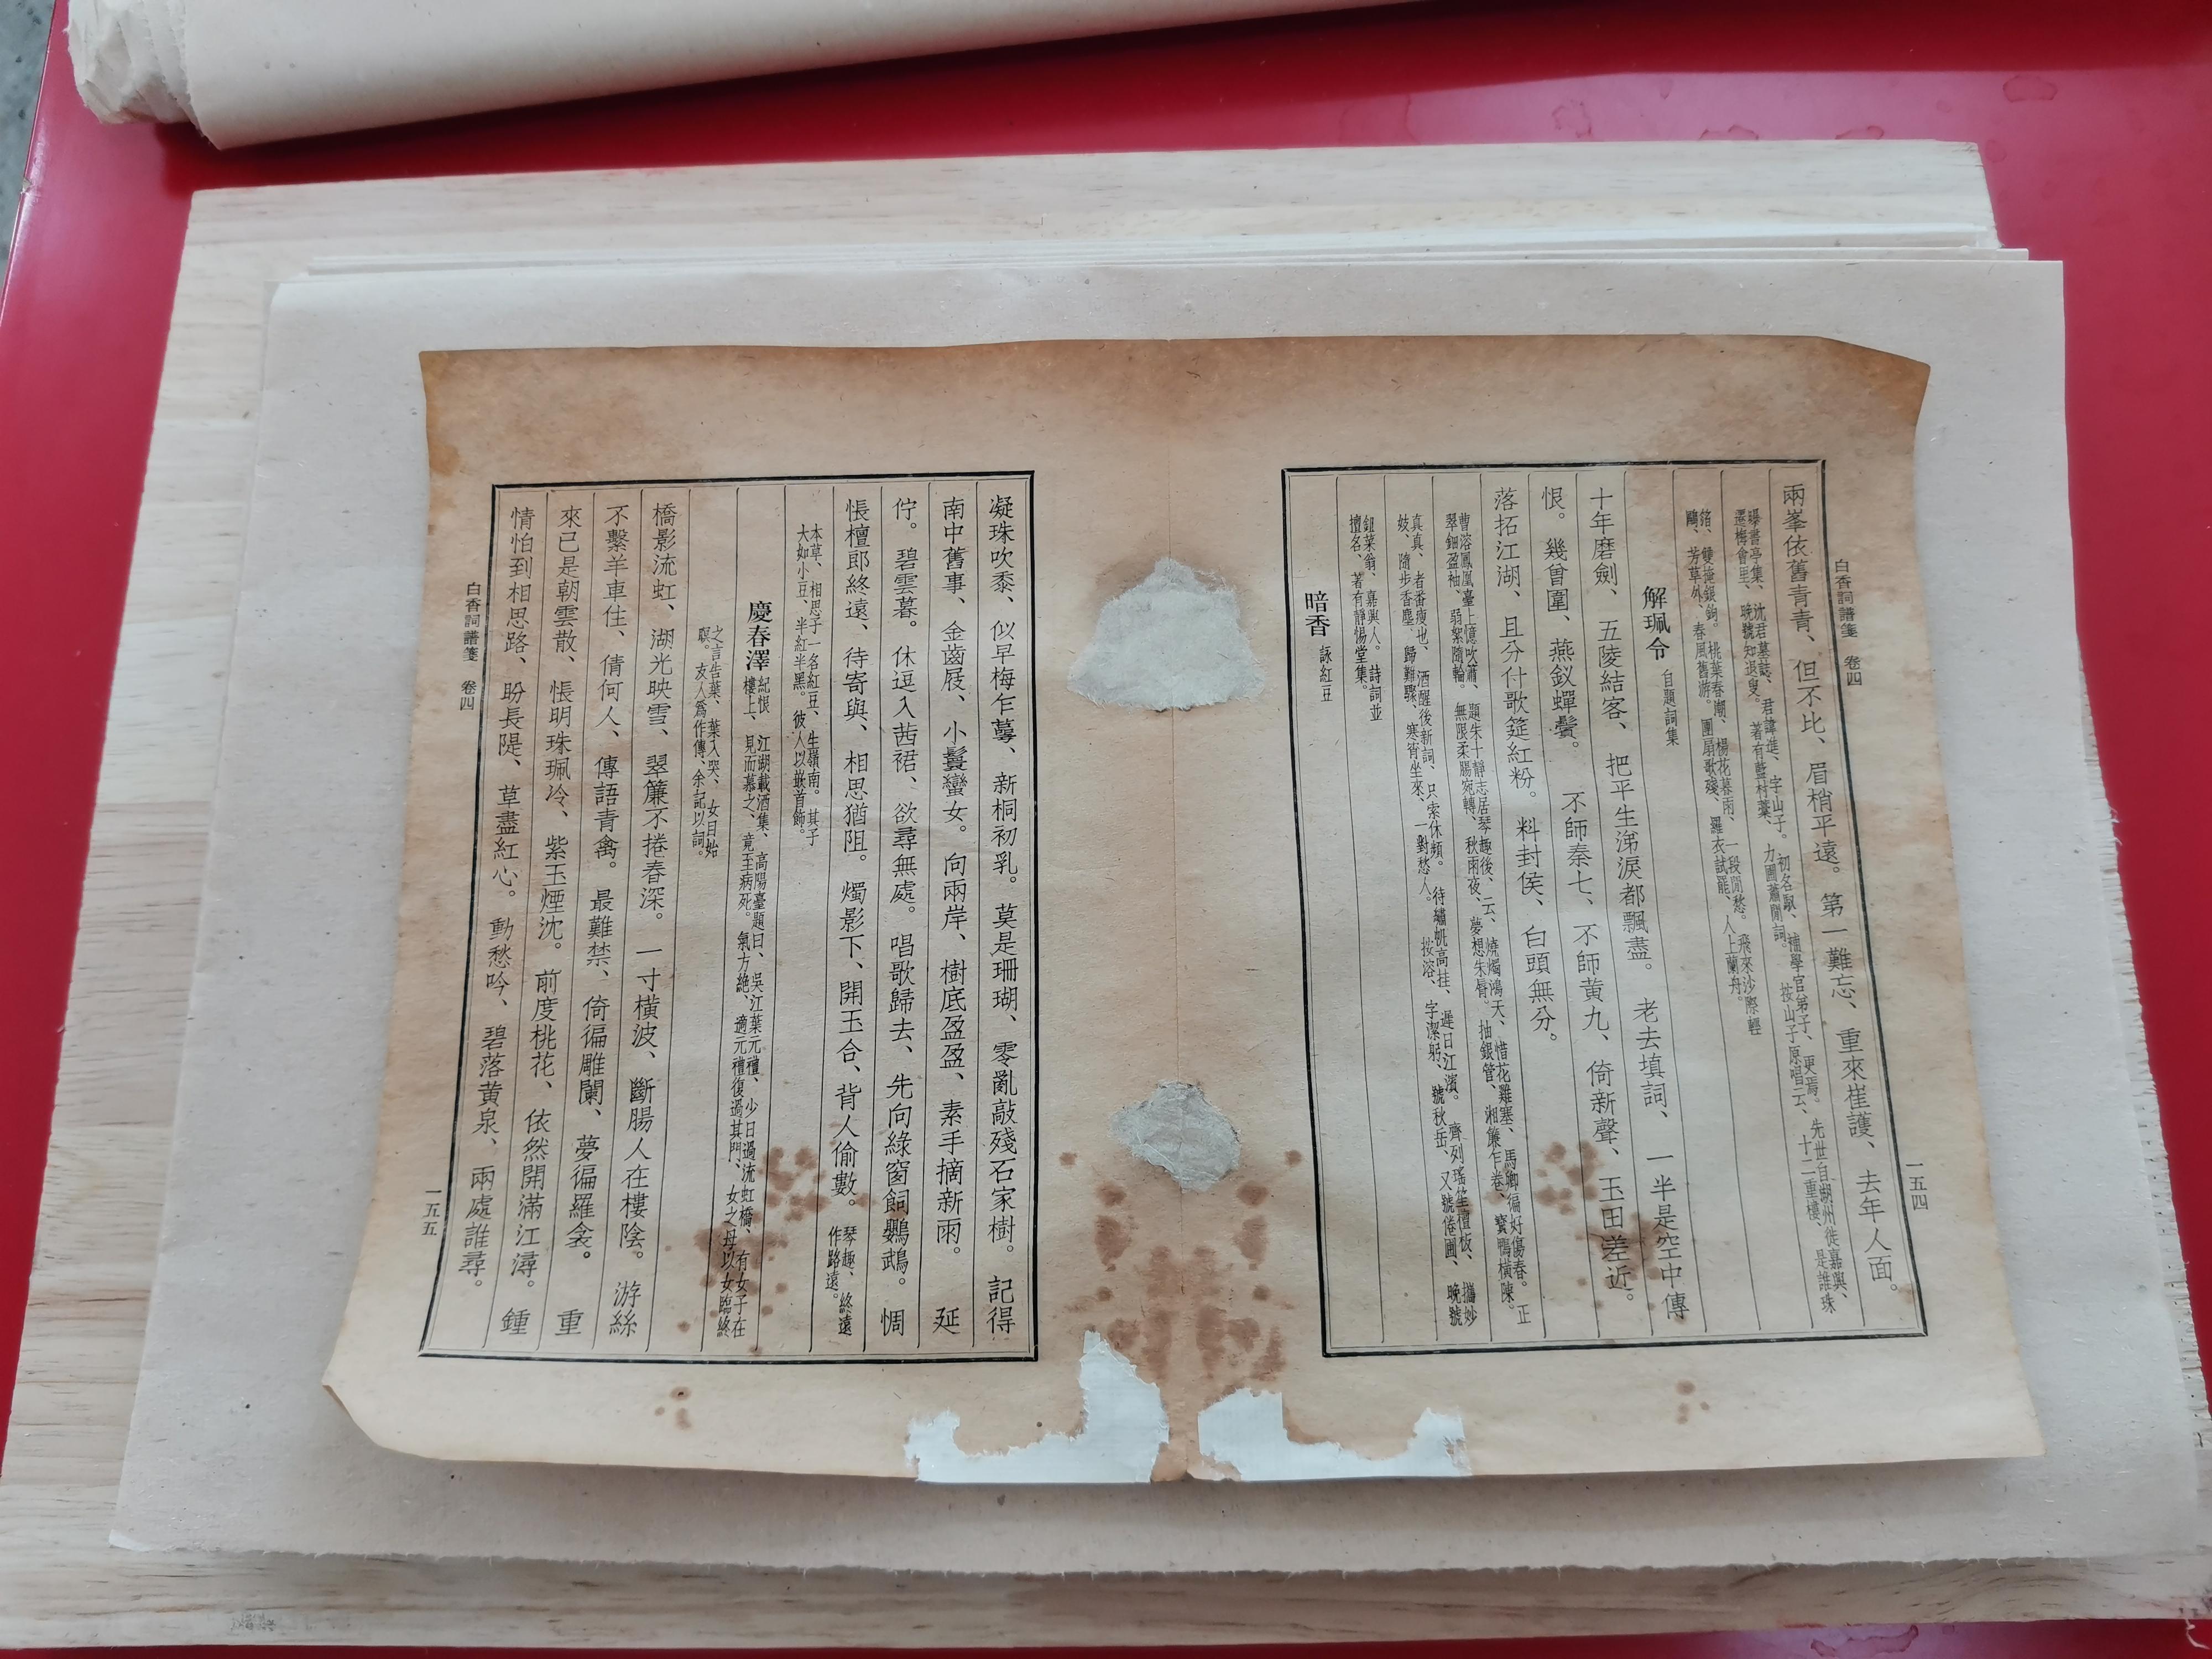 白香詞譜箋 卷四 一五四
兩峯依舊青青、但不比、眉梢平遠。第一難忘、重來崔護、去年人面。
曝書亭集、沈君墓誌、君諱進、字山子。初名馭、補學官弟子、更焉。先世自湖州徙嘉興、
遷梅會里、晚號知退叟。著有藍村藁、力圃蕭閒詞。按山子原唱云、十二重樓、是誰珠
箔、雙掩銀鉤。桃葉春潮、楊花暮雨、一段閒愁。飛來沙際輕
鷗、芳草外、春風舊游。團扇歌殘、羅衣試罷、人上蘭舟。
解珮令 自題詞集
十年磨劍、五陵結客、把平生涕淚都飄盡。老去填詞、一半是空中傳
恨。幾曾圍、燕釵蟬鬢。 不師秦七、不師黃九、倚新聲、玉田差近。
落拓江湖、且分付歌筵紅粉。料封侯、白頭無分。
曹溶鳳凰臺上憶吹簫、題朱十靜志居琴趣後、云、燒燭鴻天、惜花雞塞、馬卿徧好傷春。正
翠鈿盈袖、弱絮隨輪。無限柔腸宛轉、秋雨夜、夢想朱脣。抽銀管、湘簾乍卷、寶鴨橫陳。
真真、者番瘦也、酒醒後新詞、只索休頻。待繡帆高挂、遲日江濱。齊列瑤笙檀板、攜妙
妓、隨步香塵、歸難驟、寒宵坐來、一對愁人。按溶、字潔躬、號秋岳、又號倦圃、晚號
鉏菜翁、嘉興人。詩詞並
擅名、著有靜惕堂集。
暗香 詠紅豆
凝珠吹黍、似早梅乍萼、新桐初乳。莫是珊瑚、零亂敲殘石家樹。記得
南中舊事、金齒屐、小鬟蠻女。向兩岸、樹底盈盈、素手摘新雨。 延
佇。碧雲暮。休逗入茜裙、欲尋無處。唱歌歸去、先向綠窗飼鸚鵡。惆
悵檀郎終遠、待寄與、相思猶阻。燭影下、開玉合、背人偷數。 琴趣、終遠
作路遠。
本草、相思子一名紅豆、生嶺南。其子
大如小豆、半紅半黑。彼人以嵌首飾。
慶春澤 紀恨 江湖載酒集、高陽臺題曰、吳江葉元禮、少日過流虹橋、有女子在
樓上、見而慕之、竟至病死。氣方絶、適元禮復過其門、女之母以女臨終
之言告葉、葉入哭、女目始
瞑。友人爲作傳、余記以詞。
橋影流虹、湖光映雪、翠簾不捲春深。一寸橫波、斷腸人在樓陰。游絲
不繫羊車住、倩何人、傳語青禽。最難禁、倚徧雕闌、夢徧羅衾。 重
來已是朝雲散、悵明珠珮冷、紫玉煙沈。前度桃花、依然開滿江潯。鍾
情怕到相思路、盼長隄、草盡紅心。動愁吟、碧落黃泉、兩處誰尋。
白香詞譜箋 卷四 一五五